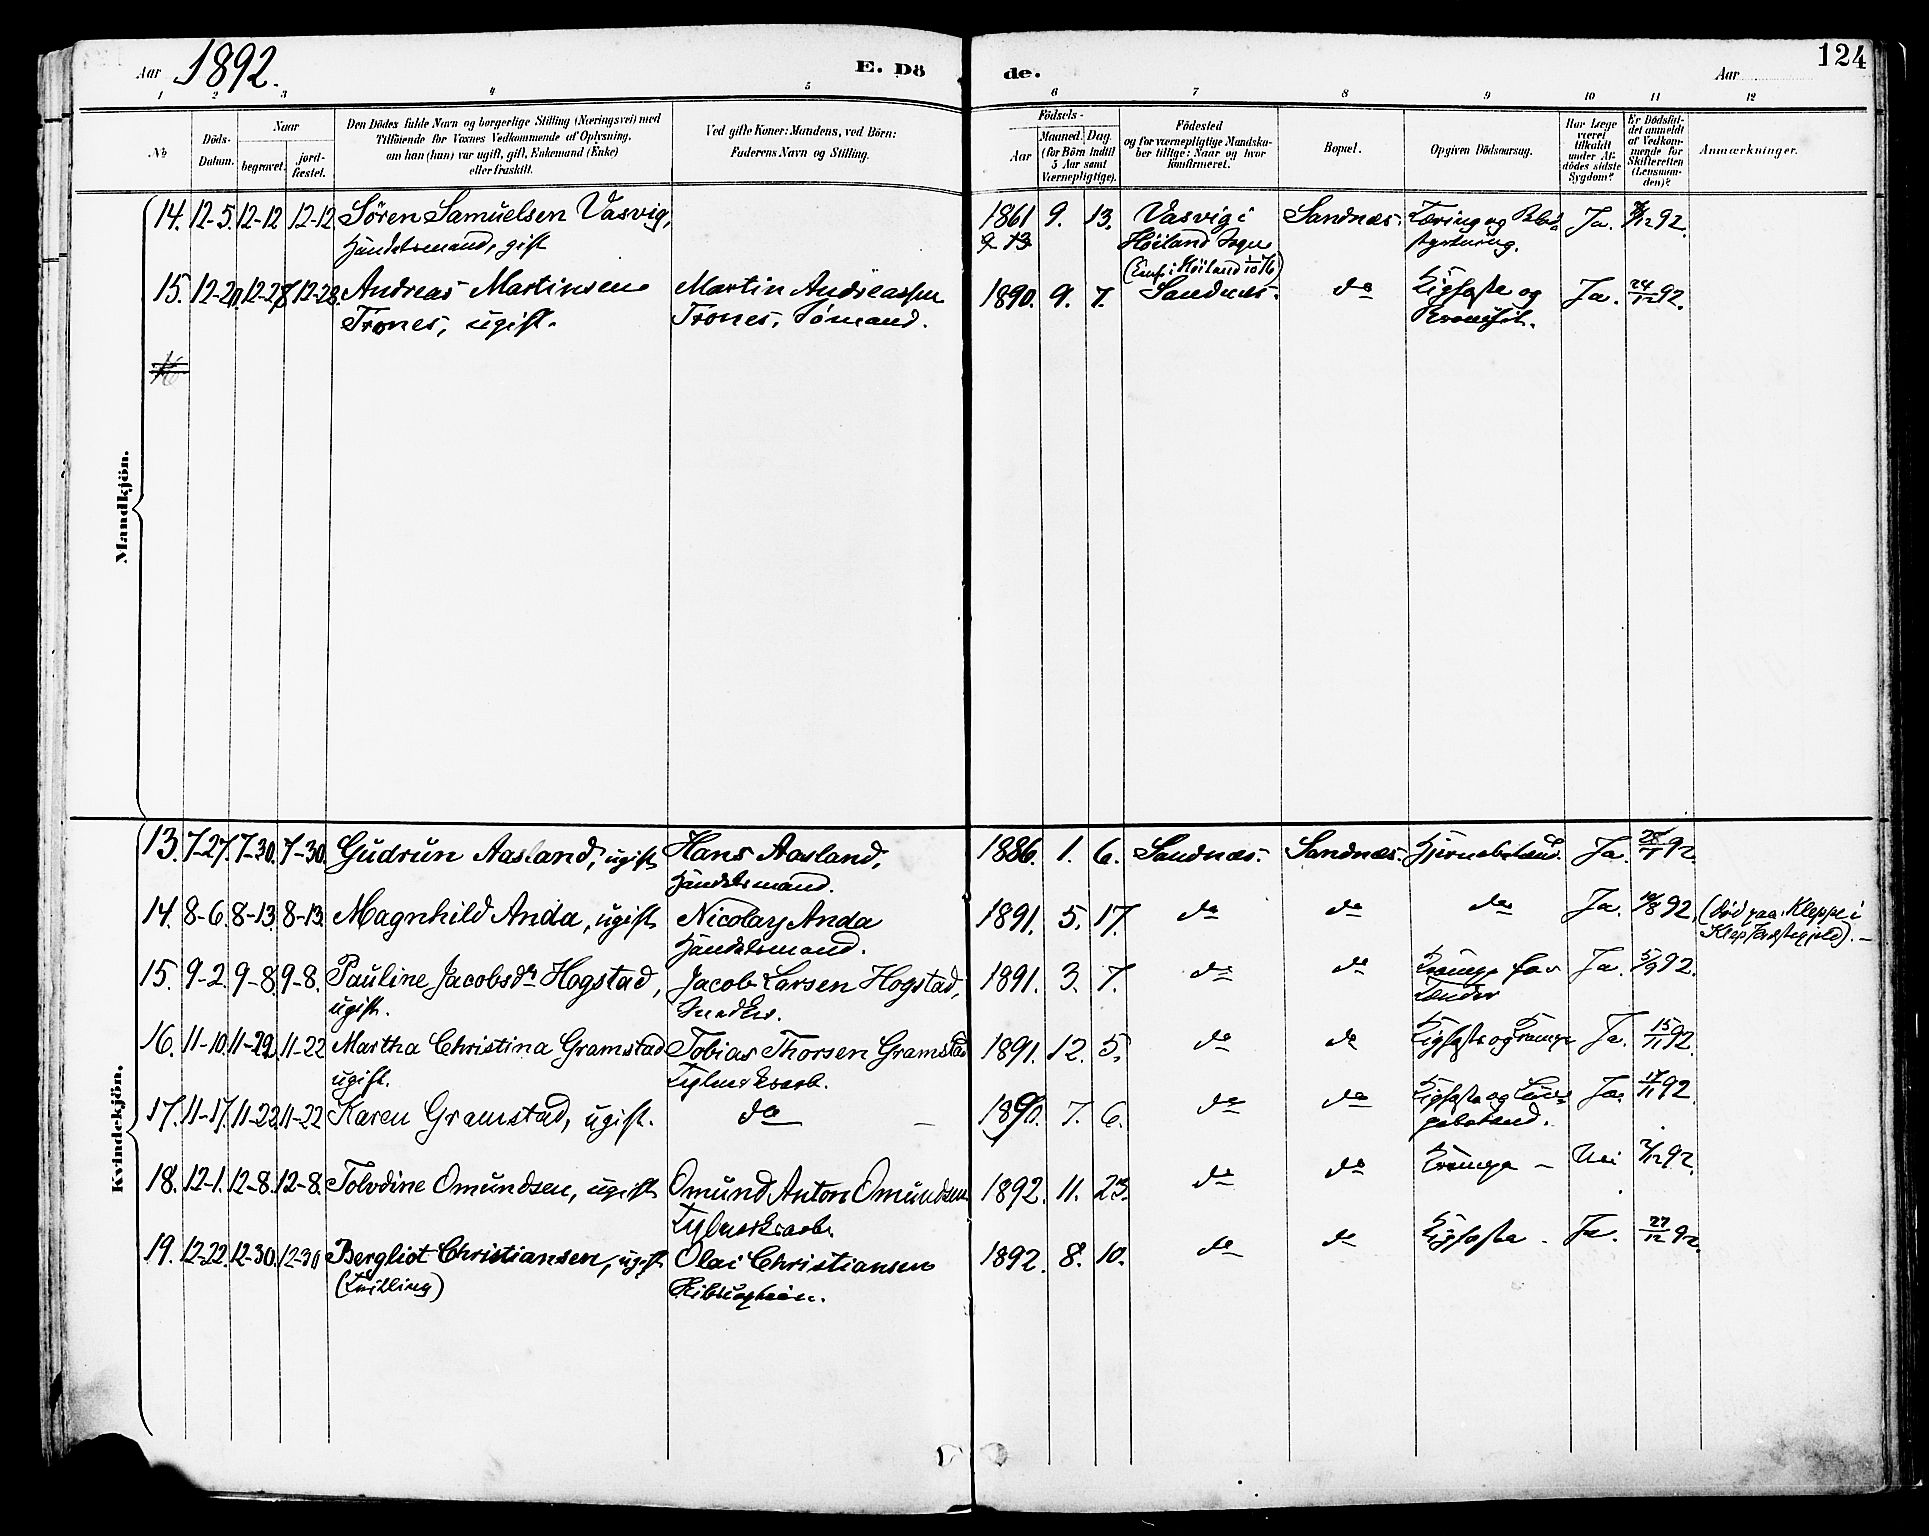 Aar 1892.
E. Dö
de.
Aar
124
1 2 3 4 5 6 7 8 9 10 11 12
No
Döds-
Datum.
Naar
begravet.
jord-
fæstet.
Den Dödes fulde Navn og borgerlige Stilling (Næringsvei) med
Tilföiende for Voxnes Vedkommende af Oplysning,
om han (hun) var ugift, gift, Enkemand (Enke)
eller fraskilt.
Ved gifte Koner: Mandens, ved Börn:
Faderens Navn og Stilling.
Födsels-
Aar
Maaned. Dag.
(for Börn indtil
5 Aar samt
Værnepligtige).
Födested
og for værnepligtige Mandska-
ber tillige: Naar og hvor
konfirmeret.
Bopæl.
Opgiven Dödsaarsag.
Har Læge
været
tilkaldt
under Af-
dödes sidste
Sygdom?
Er Dödsfal-
det anmeldt
af Vedkom-
mende for
Skifteretten
(Lensman-
den)?
Anmærkninger.
Mandkjön.
14. 12-5. 12-12 12-12 Sören Samuelsen Vasvig, 1861 9. 13. Vasvig i Sandnæs. Tæring og Blod- Ja. 92.
Handelsmand, gift Höiland Sogn styrtning.
(Conf. i Höiland 1/10 76)
15. 12-28 12-28. Andreas Martinsen Martin Andreassen 1890. 9. 7. Sandnæs. do Kighoste og Ja. 24/12 92.
Trones, ugift. Trones, Sömand.
16
Kvindekjön.
13. 7-27. 7-30. 7-30. Gudrun Aasland, ugift Hans Aasland, 1886. 1. 6. Sandnæs. Sandnæs. Hjernebetænd. Ja. 92.
Handelsmand.
14. 8-6. 8-13. 8-13. Magnhild Anda, ugift Nicolay Anda 1891. 5. 17. do do do Ja. 92. (död paa Kleppe i
Handelsmand. Klep Præstegjeld). -
15. 9-2. 9-8. 9-8. Pauline Jacobsdr Hogstad, Jacob Larsen Hogstad, 1891. 3. 7. do do Krampe for Ja. 5/9 92.
ugift. Snedker. Tænder
16. 11-10. 11-22. 11-22 Martha Christina Gramstad Tobias Thorsen Gramstad 1891. 12. 5. do do Kighoste og Krampe Ja. 15/11 92.
ugift. Fylinskvarb.
17. 11-17. 11-22 11-22 Karen Gramstad, ugift. do - 1890. 7. 6. do do Kighoste og Lun- Ja. 17/11 92.
gebetænd.
18. 12-1. 12-8. 12-8. Tolvdine Omundsen, ugift Omund Anton Omundsen 1892. 11. 23. do do Krampe - Nei 2/12 92.
19. 12-22. 12-30. 12-30 Bergliot Christiansen, ugift Olai Christiansen 1892. 8. 10. do do Kighoste - Ja. 27/12 92.
(Tvilling)